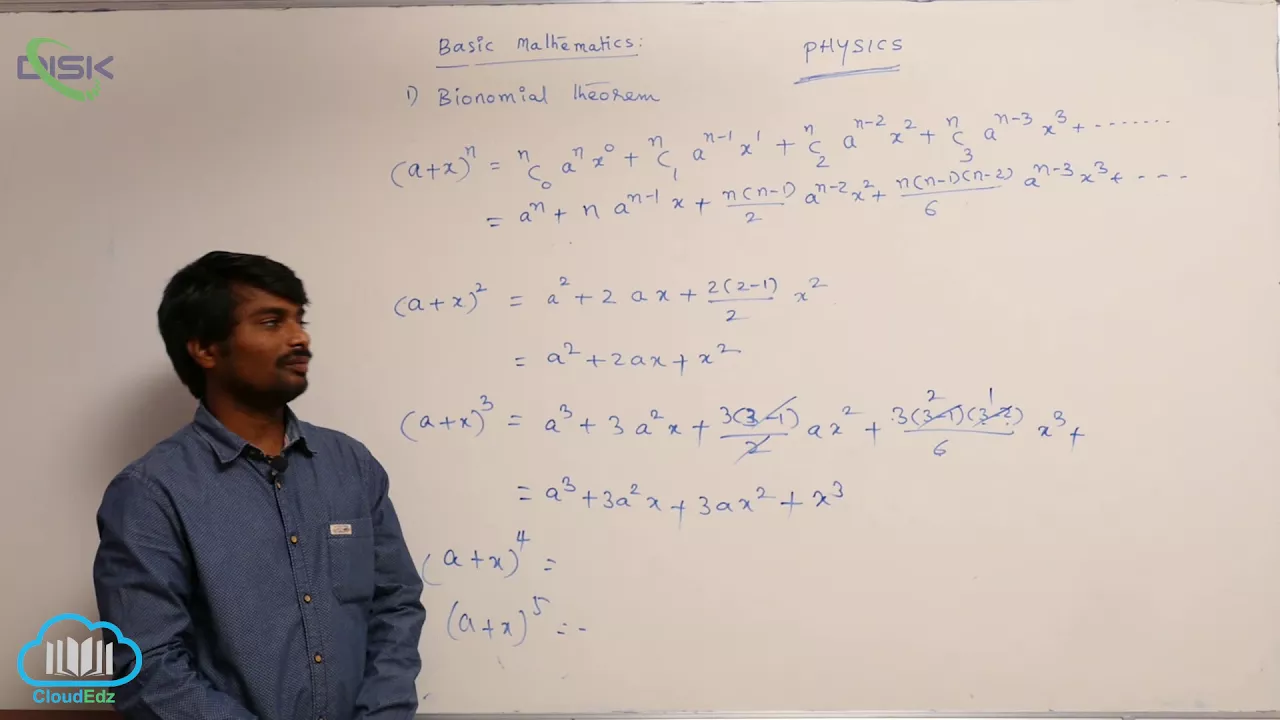 DISK
Basic Mathematics:
PHYSICS
1) Bionomial theorem
(a+x)^n = ^nC_0 a^n x^0 + ^nC_1 a^{n-1} x^1 + ^nC_2 a^{n-2} x^2 + ^nC_3 a^{n-3} x^3 + .......
= a^n + n a^{n-1} x + \frac{n(n-1)}{2} a^{n-2} x^2 + \frac{n(n-1)(n-2)}{6} a^{n-3} x^3 + ---
(a+x)^2 = a^2 + 2 a x + \frac{2(2-1)}{2} x^2
= a^2 + 2ax + x^2
(a+x)^3 = a^3 + 3 a^2 x + \frac{3(3-1)}{2} a x^2 + \frac{3(3-1)(3-2)}{6} x^3 +
= a^3 + 3a^2 x + 3ax^2 + x^3
(a+x)^4 =
(a+x)^5 = -
CloudEdz